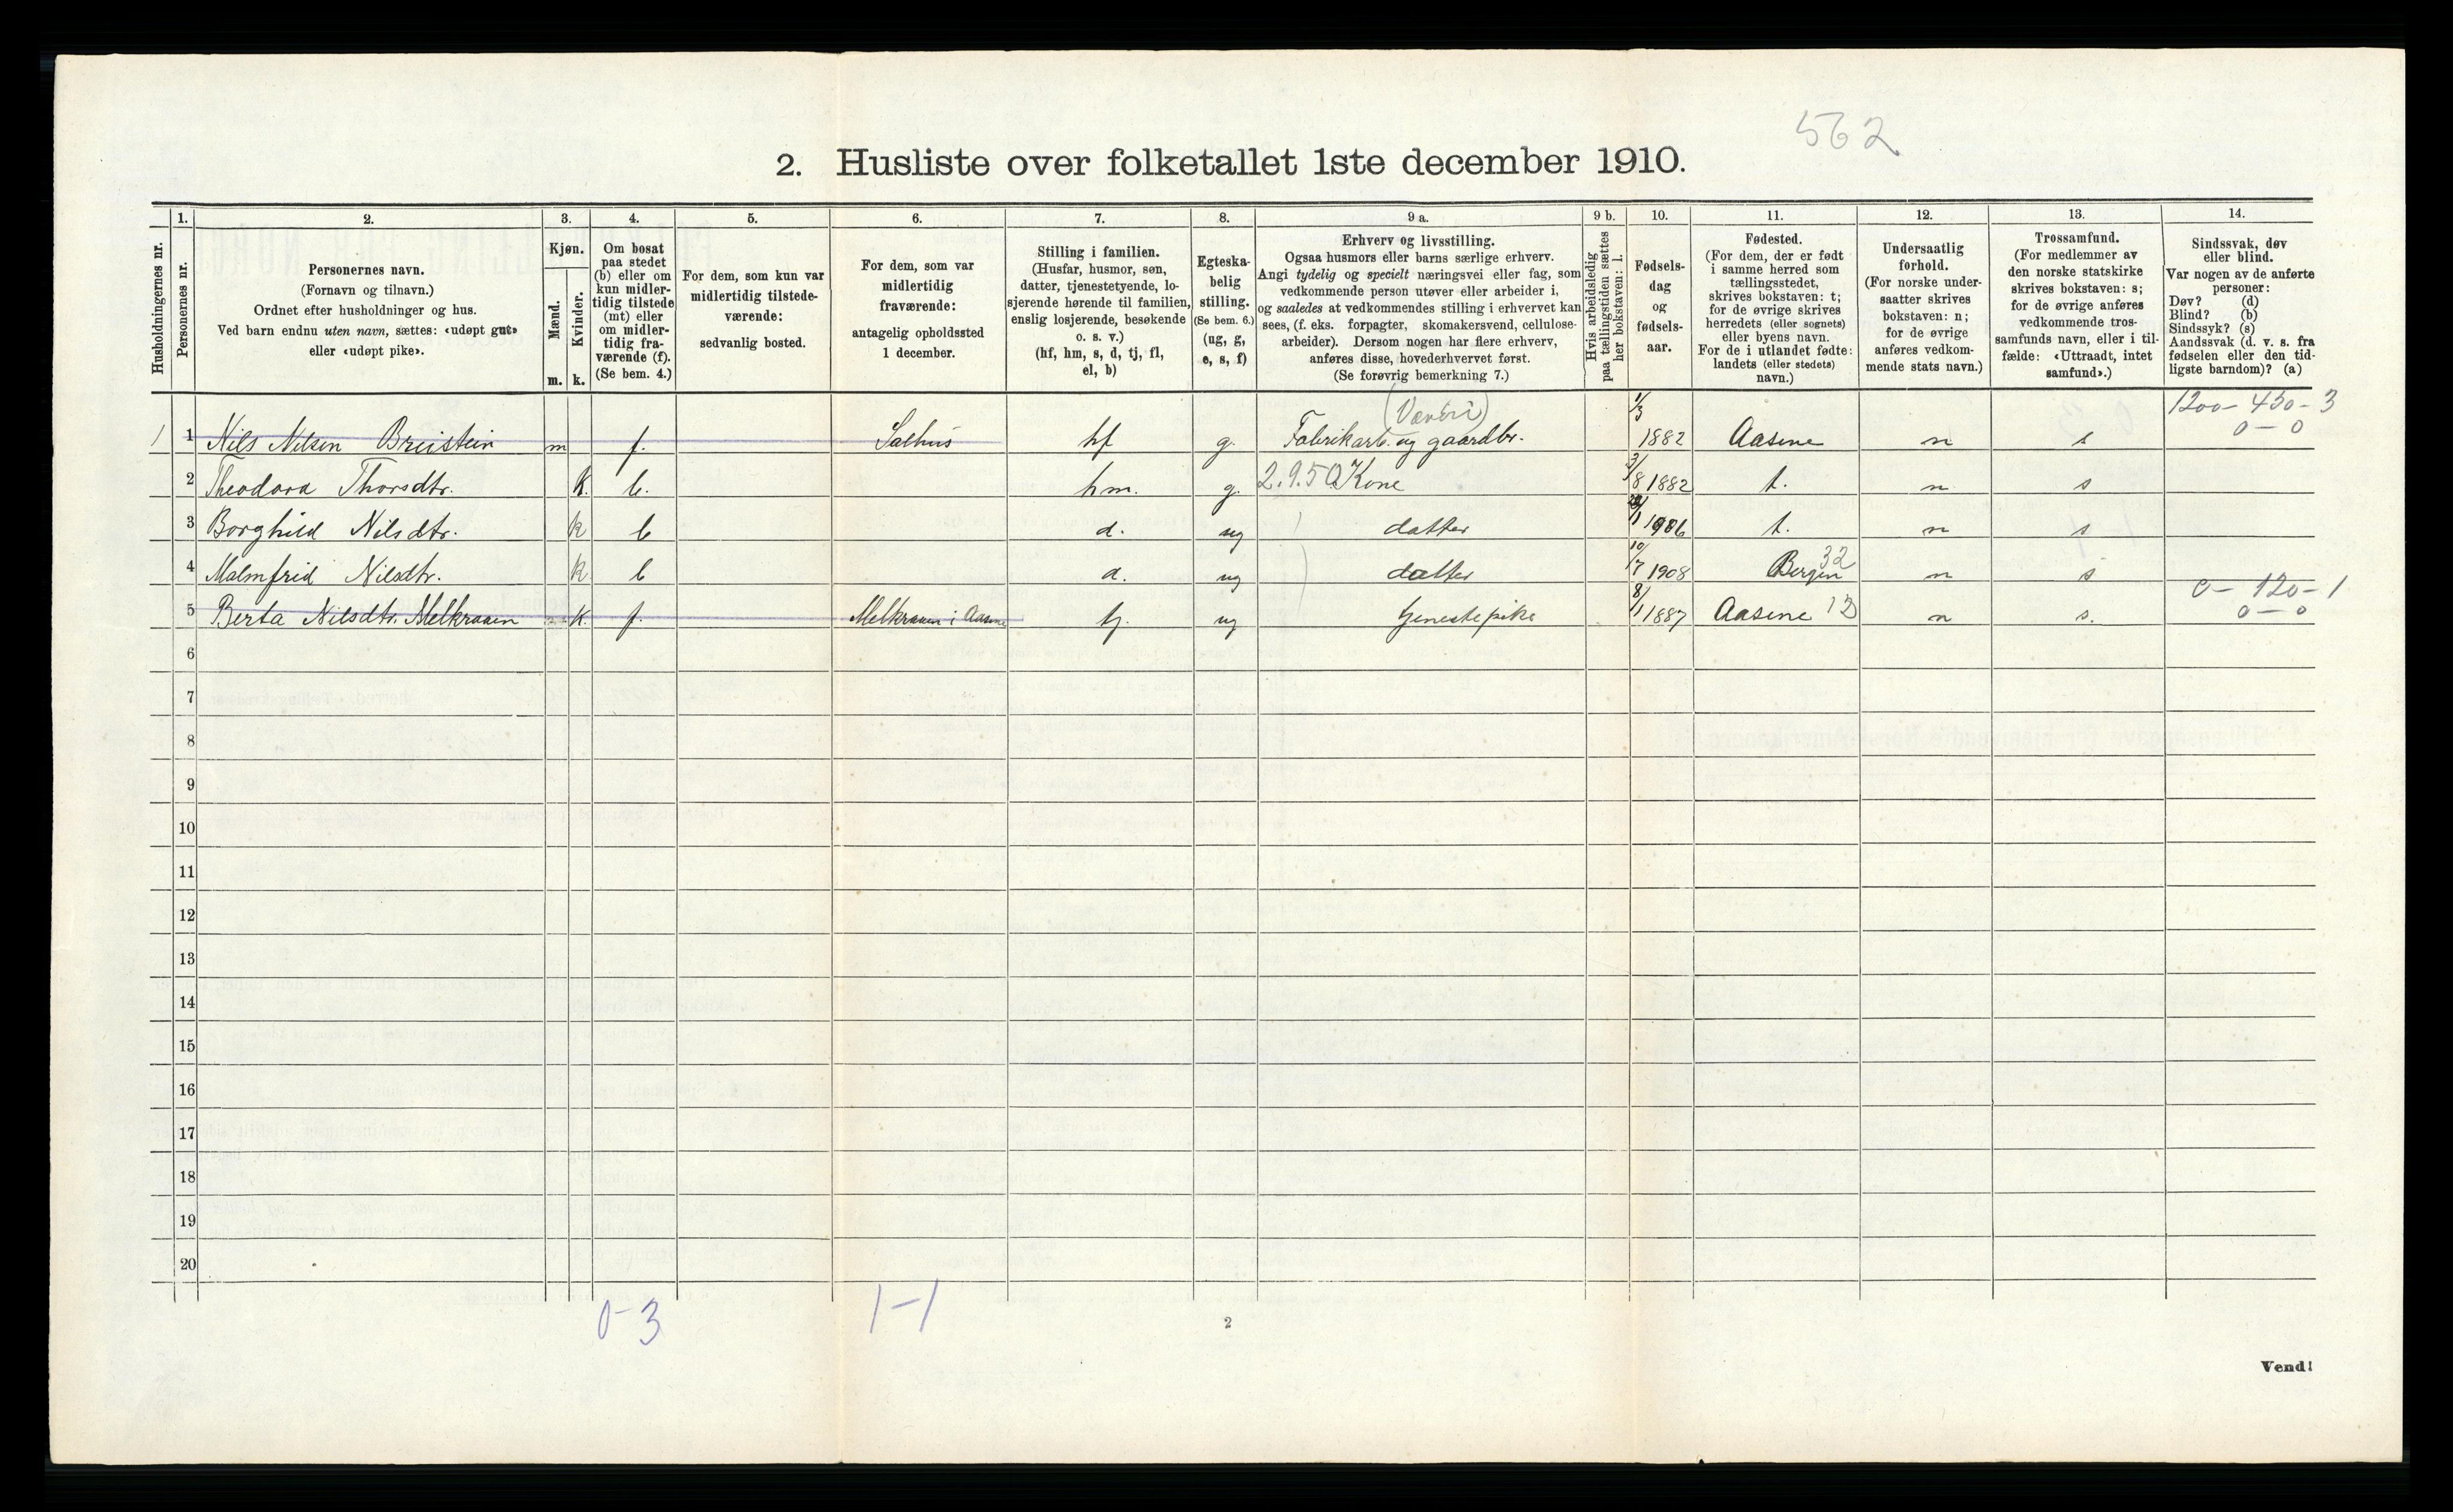 562
2. Husliste over folketallet 1ste december 1910.
Husholdningernes nr.
1.
Personernes nr.
2.
Personernes navn.
(Fornavn og tilnavn.)
Ordnet efter husholdninger og hus.
Ved barn endnu uten navn, sættes: «udøpt gut»
eller «udøpt pike».
3.
Kjøn.
Mænd.
Kvinder.
m. k.
4.
Om bosat
paa stedet
(b) eller om
kun midler-
tidig tilstede
(mt) eller
om midler-
tidig fra-
værende (f).
(Se bem. 4.)
5.
For dem, som kun var
midlertidig tilstede-
værende:
sedvanlig bosted.
6.
For dem, som var
midlertidig
fraværende:
antagelig opholdssted
1 december.
7.
Stilling i familien.
(Husfar, husmor, søn,
datter, tjenestetyende, lo-
sjerende hørende til familien,
enslig losjerende, besøkende
o. s. v.)
(hf, hm, s, d, tj, fl,
el, b)
8.
Egteska-
belig
stilling.
(Se bem. 6.)
(ug, g,
e, s, f)
9 a.
Erhverv og livsstilling.
Ogsaa husmors eller barns særlige erhverv.
Angi tydelig og specielt næringsvei eller fag, som
vedkommende person utøver eller arbeider i,
og saaledes at vedkommendes stilling i erhvervet kan
sees, (f. eks. forpagter, skomakersvend, cellulose-
arbeider). Dersom nogen har flere erhverv,
anføres disse, hovederhvervet først.
(Se forøvrig bemerkning 7.)
9 b.
Hvis arbeidsledig
paa tællingstiden sættes
her bokstaven: l.
10.
Fødsels-
dag
og
fødsels-
aar.
11.
Fødested.
(For dem, der er født
i samme herred som
tællingsstedet,
skrives bokstaven: t;
for de øvrige skrives
herredets (eller sognets)
eller byens navn.
For de i utlandet fødte:
landets (eller stedets)
navn.)
12.
Undersaatlig
forhold.
(For norske under-
saatter skrives
bokstaven: n;
for de øvrige
anføres vedkom-
mende stats navn.)
13.
Trossamfund.
(For medlemmer av
den norske statskirke
skrives bokstaven: s;
for de øvrige anføres
vedkommende tros-
samfunds navn, eller i til-
fælde: «Uttraadt, intet
samfund».)
14.
Sindssvak, døv
eller blind.
Var nogen av de anførte
personer:
Døv? (d)
Blind? (b)
Sindssyk? (s)
Aandssvak (d. v. s. fra
fødselen eller den tid-
ligste barndom)? (a)
(Væveri) 1200 - 450 - 3
1 1 Nils Nilsen Breistein m f. Salhus hf g. Fabrikarb. og gaardbr. 1/3 1882 Aasene n s 0 - 0
2 Theodora Thorsdtr. k. b. hm. g. 2.9.50 Kone 3/8 1882 t. n s
3 Borghild Nilsdtr. k b d. ug datter 1906 t. n s
4 Malmfrid Nilsdtr. k b d. ug datter 10/7 1908 Bergen 32 n s
0 - 120 - 1
5 Berta Nilsdtr. Melkraaen k. f. Melkraaen i Aasene tj. ug tjenestepike 8/1 1887 Aasene 12 n s. 0 - 0
6
7
8
9
10
11
12
13
14
15
16
17
18
19
20
0-3 1-1
2
Vend!